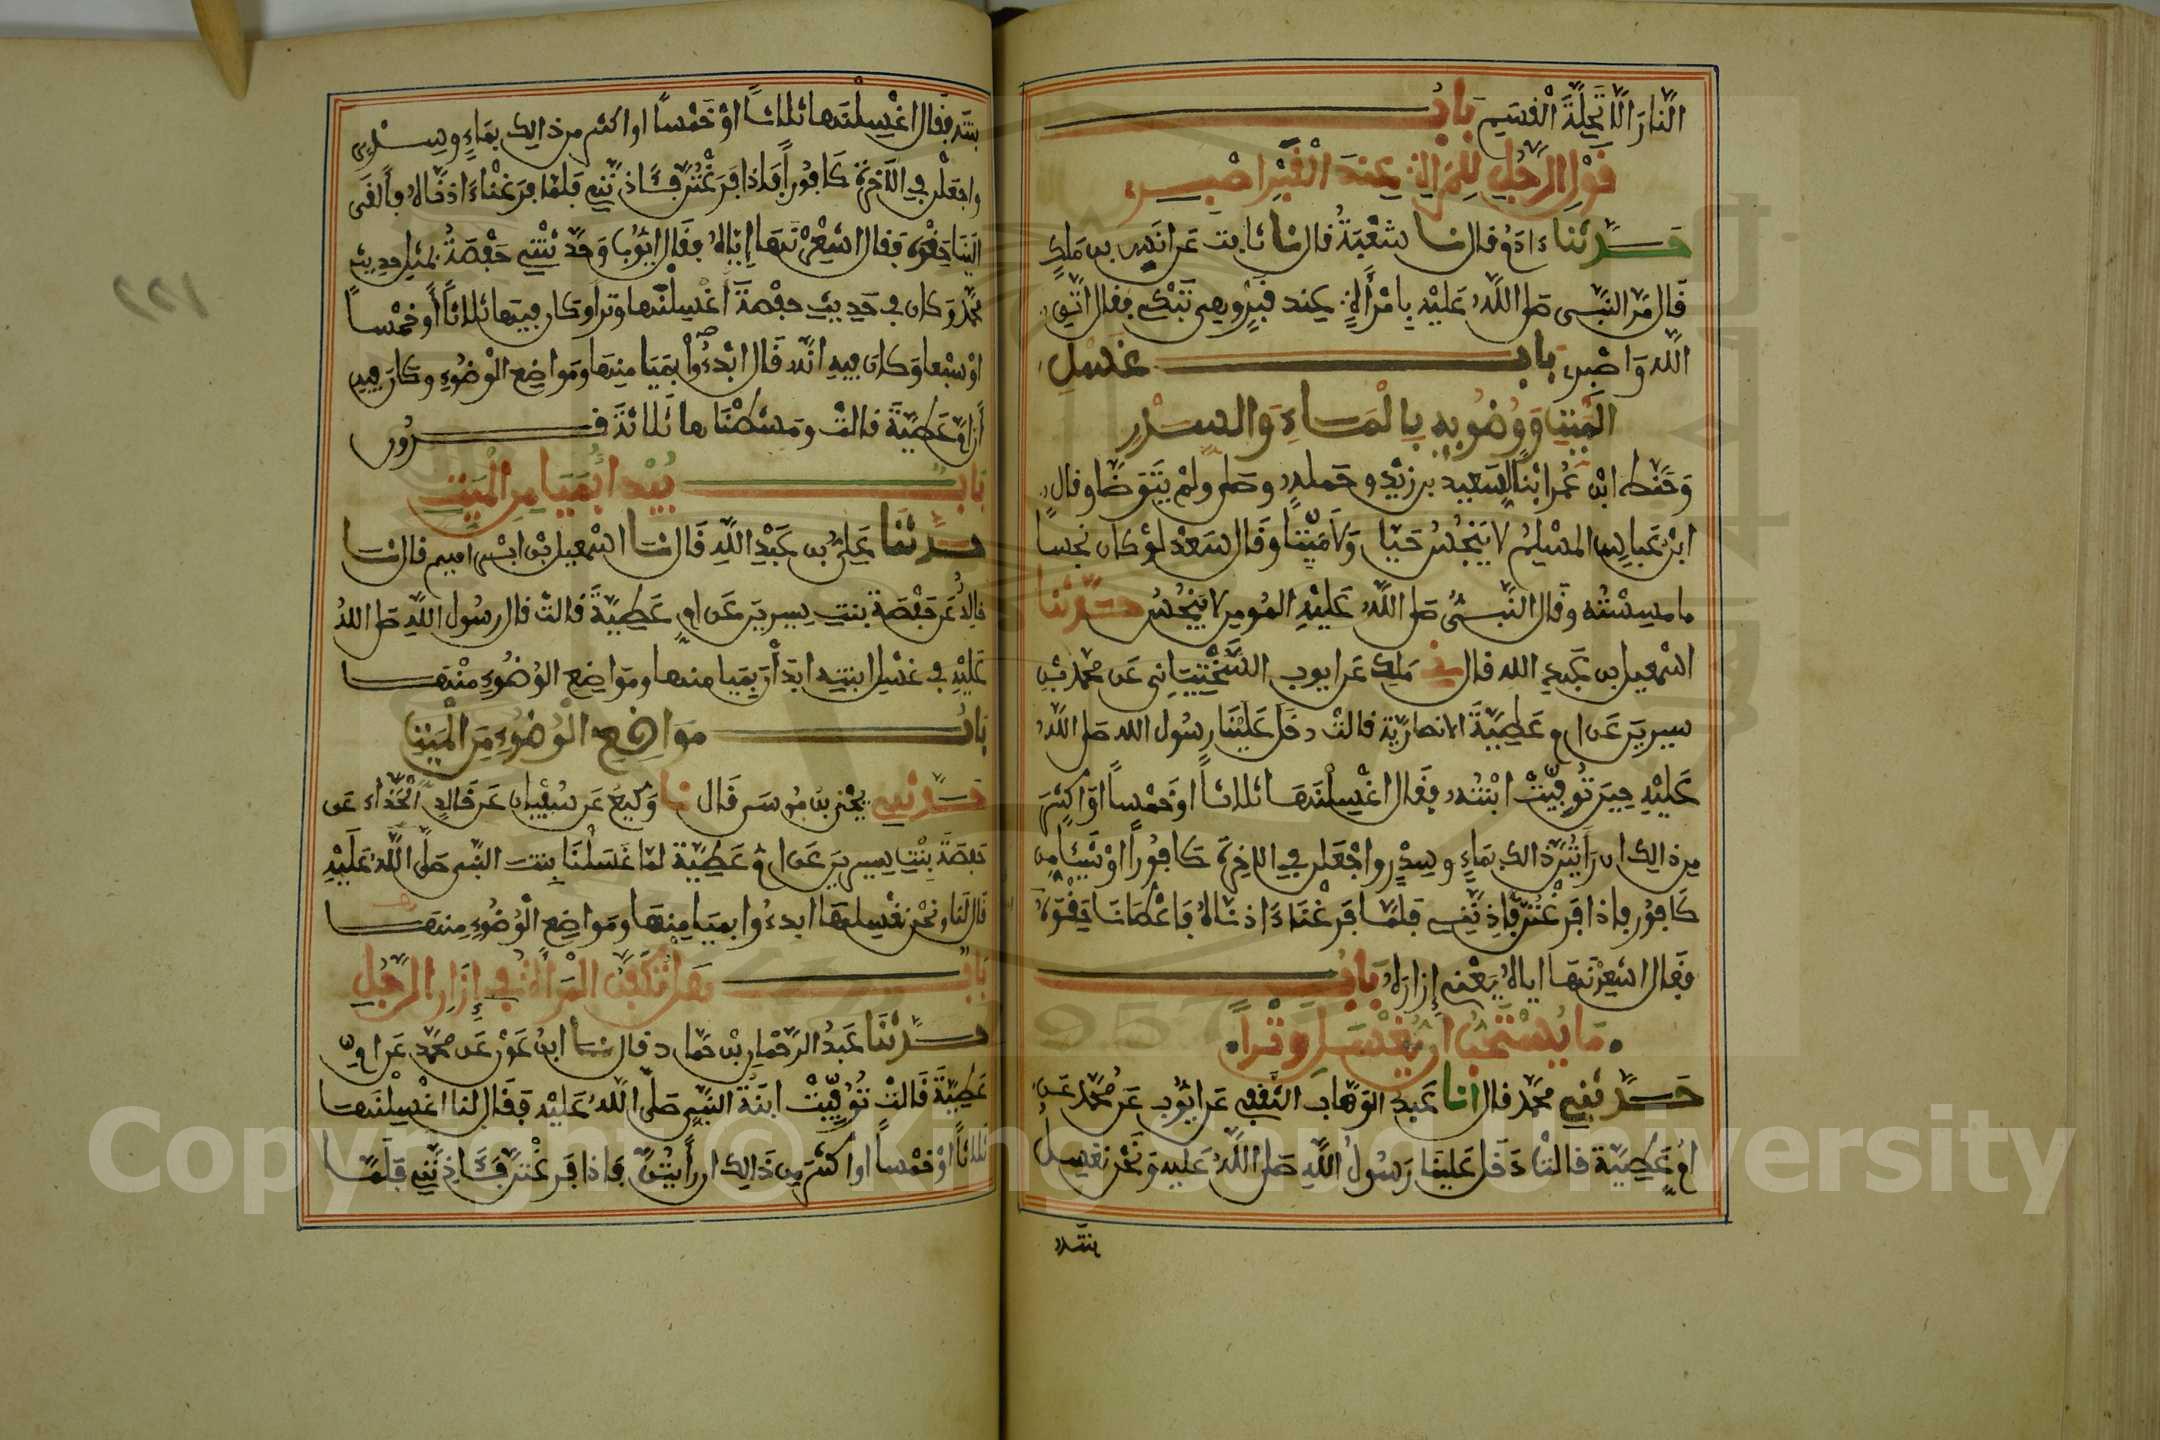 النار الا تحلة القسم باب
قول الرجل للمرأة عند القبر اصبري
حدثنا ءادم قال نا شعبة قال نا ثابت عن انس بن ملك
قال مر النبي صلى الله عليه بامرأة عند قبر وهي تبكي فقال اتقي
الله واصبري باب غسل
الميت ووضوءه بالماء والسدر
وحنط ابن عمر ابنا لسعيد بن زيد وحمله وصلى ولم يتوضا وقال
ابن عباس المسلم لا ينجس حيا ولا ميتا وقال سعد لو كان نجسا
ما مسسته وقال النبي صلى الله عليه المومن لا ينجس حدثنا
اسمعيل بن عبد الله قال ني ملك عن ايوب السختياني عن محمد بن
سيرين عن ام عطية الانصارية قالت دخل علينا رسول الله صلى الله
عليه حين توفيت ابنته فقال اغسلنها ثلاثا او خمسا او اكثر
من ذالك ان رأيتن ذالك بماء وسدر واجعلن في الاخرة كافورا او شيئا من
كافور فاذا فرغتن فآذنني فلما فرغنا ءاذناه فاعطانا حقوه
فقال اشعرنها اياه يعني إزاره باب
ما يستحب ان يغسل وترا
حدثني محمد قال انا عبد الوهاب الثقفي عن ايوب عن محمد عن
ام عطية قالت دخل علينا رسول الله صلى الله عليه ونحن نغسل
بنته
بنته فقال اغسلنها ثلاثا او خمسا او اكثر من ذالك بماء وسدر
واجعلن في الآخرة كافورا فاذا فرغتن فآذنني فلما فرغنا ءاذناه فألقى
الينا حقوه فقال اشعرنها إياه فقال ايوب وحدثتني حفصة بمثل حديث
محمد وكان في حديث حفصة اغسلنها وترا وكان فيها ثلاثا أو خمسا
او سبعا وكان فيه انه قال ابدءوا بميامنها ومواضع الوضوء وكان فيه
أن ام عطية قالت ومشطناها ثلاثة قرون
باب يبدا بميامن الميت
حدثنا علي بن عبد الله قال نا اسمعيل بن ابرهيم قال نا
خالد عن حفصة بنت سيرين عن ام عطية قالت قال رسول الله صلى الله
عليه في غسل ابنته ابدأن بميامنها ومواضع الوضوء منها
باب مواضع الوضوء من الميت
حدثني يحيى بن موسى قال نا وكيع عن سفيان عن خالد الحذاء عن
حفصة بنت سيرين عن ام عطية لما غسلنا بنت النبي صلى الله عليه
قال لنا ونحن نغسلها ابدءوا بميامنها ومواضع الوضوء منها
باب هل تكفن المرأة في إزار الرجل
حدثنا عبد الرحمان بن حماد قال نا ابن عون عن محمد عن ام
عطية قالت توفيت ابنة النبي صلى الله عليه فقال لنا اغسلنها
ثلاثا او خمسا او اكثر من ذالك ان رأيتن فاذا فرغتن فآذنني فلما
١٢٢
Copyright © King Saud University